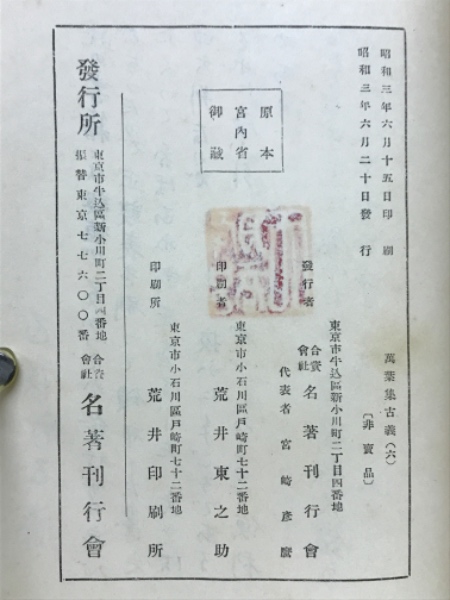 昭和三年六月十五日印刷
昭和三年六月二十日發行
萬葉集古義（六）
〔非賣品〕
原本
宮內省
御藏
東京市牛込區新小川町二丁目四番地
發行者 合資會社 名著刊行會
代表者 宮崎彦麿
東京市小石川區戶崎町七十二番地
印刷者 荒井東之助
東京市小石川區戶崎町七十二番地
印刷所 荒井印刷所
發行所 東京市牛込區新小川町二丁目四番地
振替東京七七六〇〇番
合資會社 名著刊行會